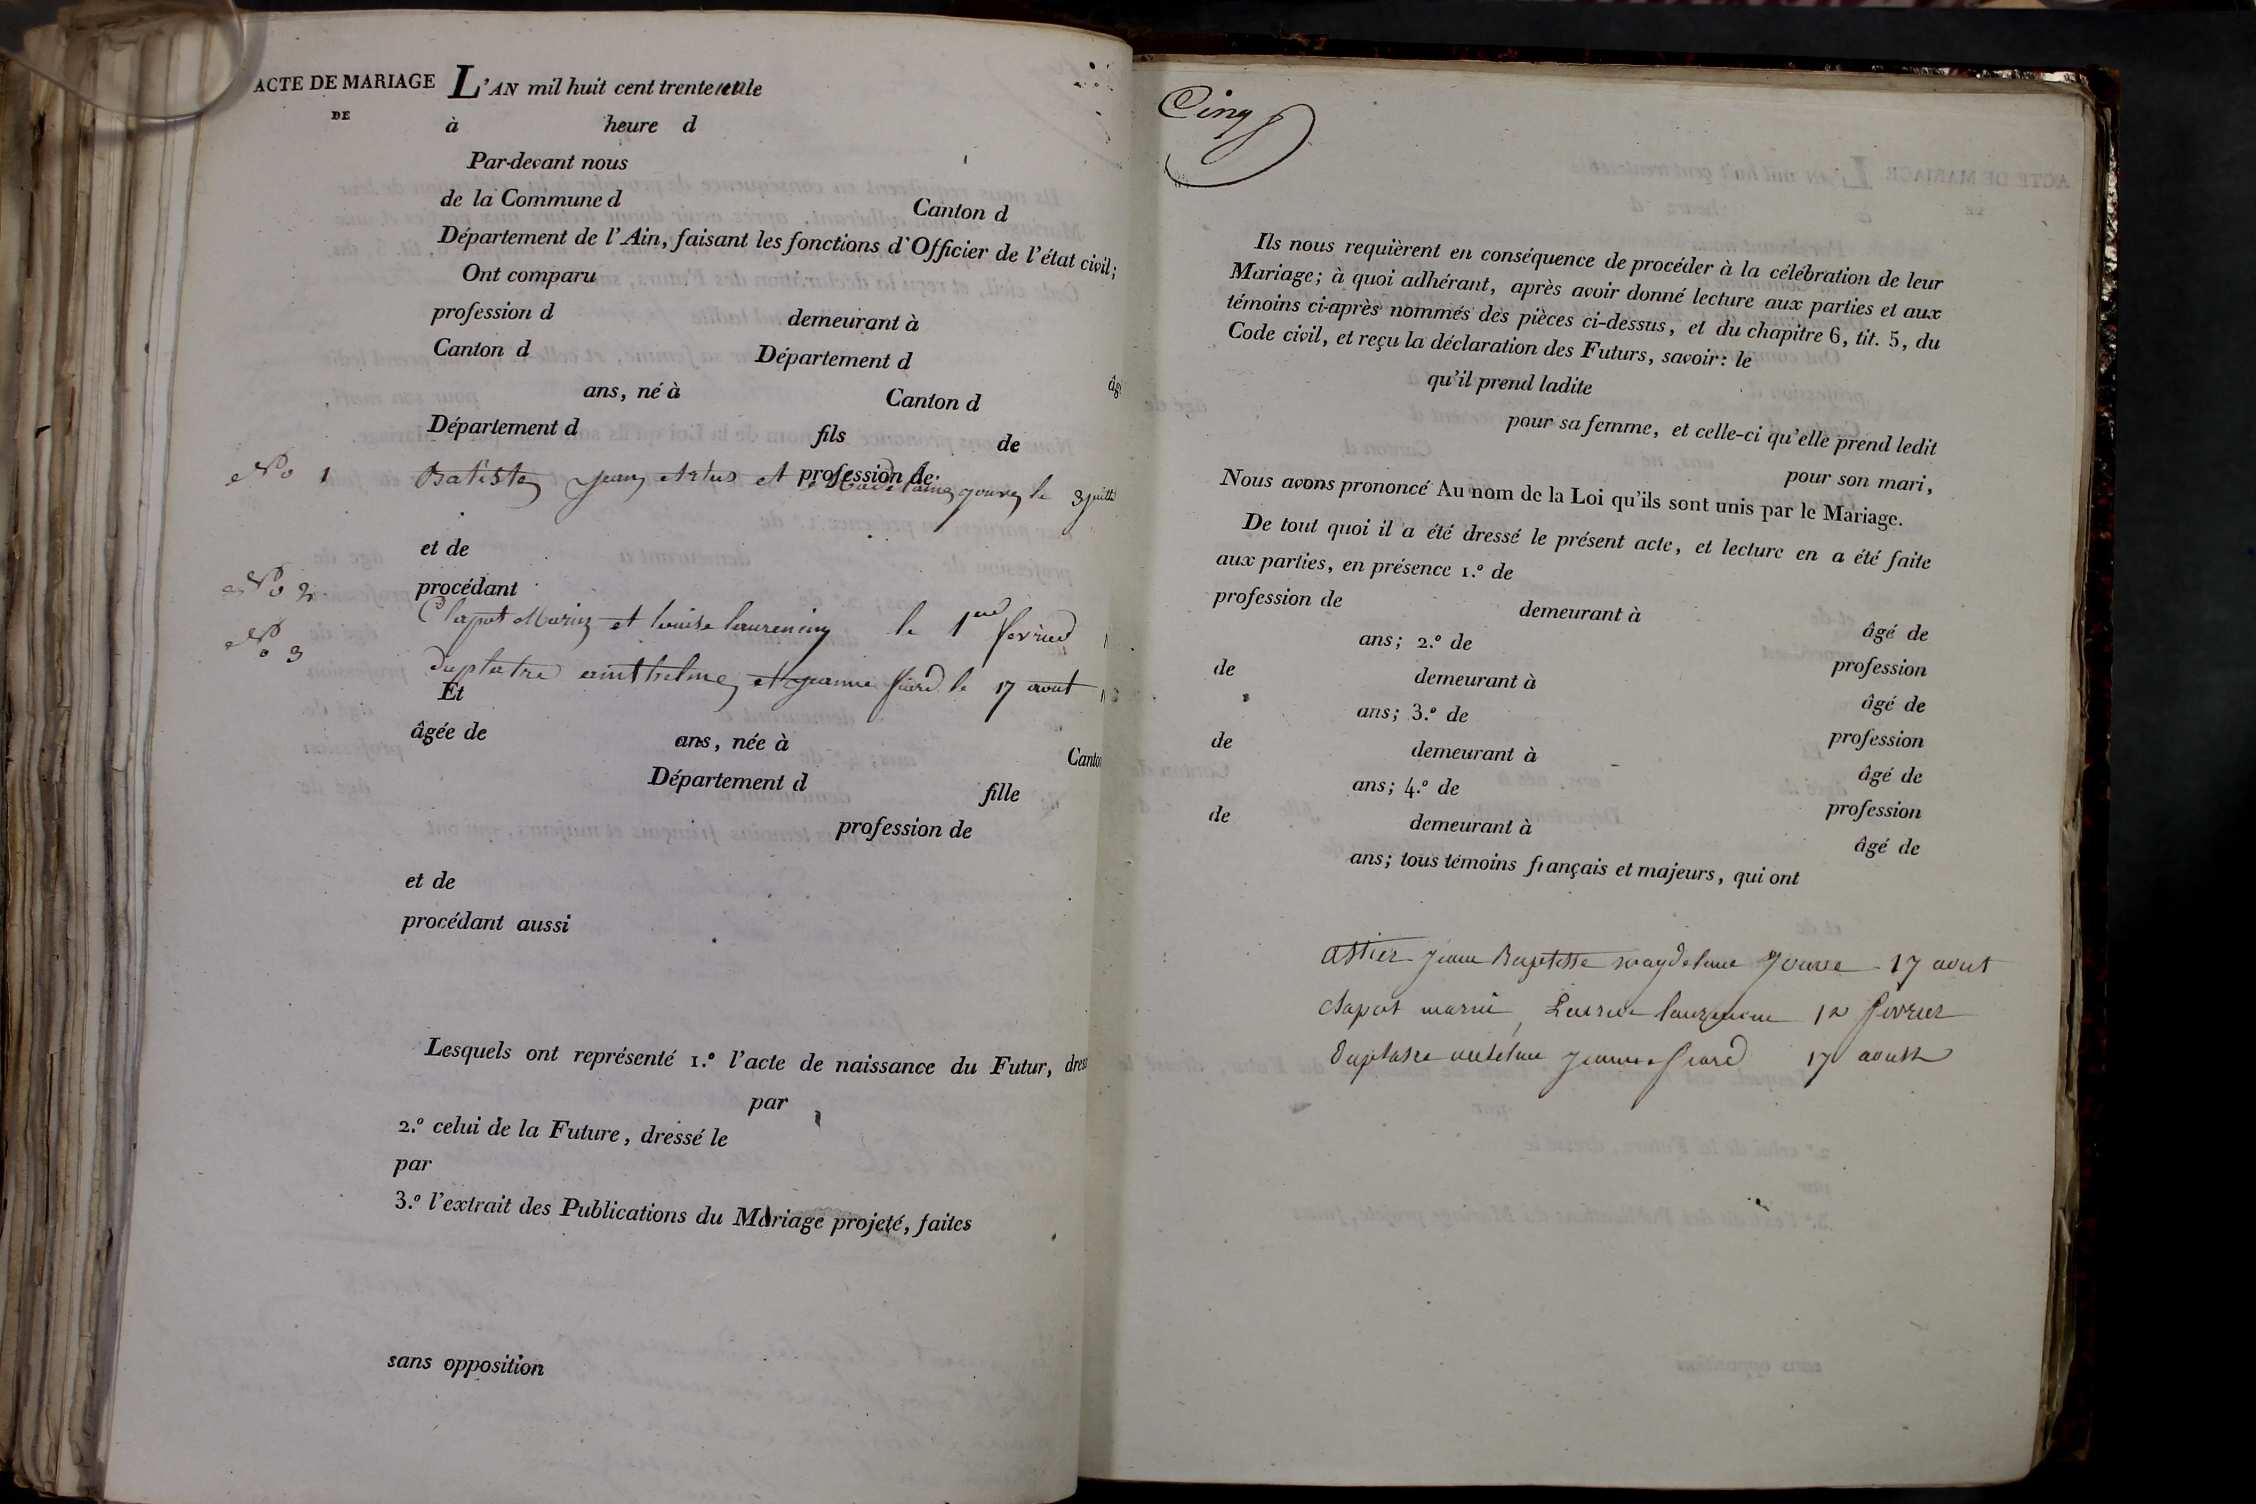 ACTE DE MARIAGE
DE
L'AN mil huit cent trente et un le
à heure d
Par-devant nous
de la Commune d Canton d
Département de l'Ain, faisant les fonctions d'Officier de l'état civil;
Ont comparu
profession d demeurant à
Canton d Département d
âgé
ans, né à Canton d
Département d fils de
profession de
No 1 Batiste Jean et Madelaine jouve le 3 juillet
et de
procédant
No 2 Chapot Marin et louise laurencin le 1er fevrier
No 3 duplatre anthelme et jeanne fiard le 17 aout
Et
âgée de ans, née à Canton
Département d fille
profession de
et de
procédant aussi
Lesquels ont représenté 1.º l'acte de naissance du Futur, dressé
par
2.º celui de la Future, dressé le
par
3.º l'extrait des Publications du Mariage projeté, faites
sans opposition
Cinq
Ils nous requièrent en conséquence de procéder à la célébration de leur
Mariage; à quoi adhérant, après avoir donné lecture aux parties et aux
témoins ci-après nommés des pièces ci-dessus, et du chapitre 6, tit. 5, du
Code civil, et reçu la déclaration des Futurs, savoir: le
qu'il prend ladite
pour sa femme, et celle-ci qu'elle prend ledit
pour son mari,
Nous avons prononcé Au nom de la Loi qu'ils sont unis par le Mariage.
De tout quoi il a été dressé le présent acte, et lecture en a été faite
aux parties, en présence 1.º de
profession de demeurant à
âgé de
ans; 2.º de profession
de demeurant à âgé de
ans; 3.º de profession
de demeurant à âgé de
ans; 4.º de profession
de demeurant à âgé de
ans; tous témoins français et majeurs, qui ont
astier jean Baptiste magdelaine Jouve 17 avout
chapot marin Louise 12 fevrier
duplatre jeanne fiard 17 aoust